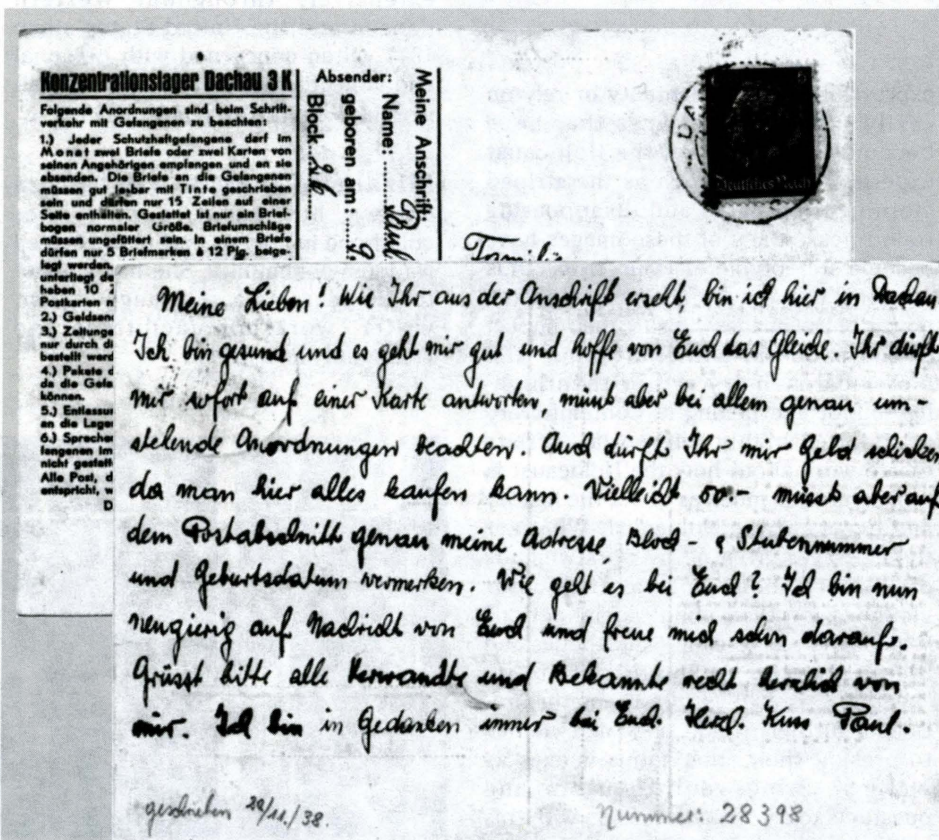 Konzentrationslager Dachau 3 K
Folgende Anordnungen sind beim Schrift-
verkehr mit Gefangenen zu beachten:
1.) Jeder Schutzhaftgefangene darf im
Monat zwei Briefe oder zwei Karten von
seinen Angehörigen empfangen und an sie
absenden. Die Briefe an die Gefangenen
müssen gut lesbar mit Tinte geschrieben
sein und dürfen nur 15 Zeilen auf einer
Seite enthalten. Gestattet ist nur ein Brief-
bogen normaler Größe. Briefumschläge
müssen ungefüttert sein. In einem Briefe
dürfen nur 5 Briefmarken à 12 Pfg. beige-
legt werden.
unterliegt de
haben 10
Postkarten
2.) Geldsen
3.) Zeitunge
nur durch di
bestellt werd
4.) Pakete d
da die Gefa
können.
5.) Entlassu
an die Lager
6.) Sprecher
fangenen im
nicht gestatt
Alle Post, d
entspricht, w
D
Meine Anschrift:
Absender:
Name:
geboren am:
Block
Deutsches Reich
Familie
Meine Lieben! Wie Ihr aus der Anschrift erseht, bin ich hier in Dachau
Ich bin gesund und es geht mir gut und hoffe von Euch das Gleiche. Ihr dürft
mir sofort auf einer Karte antworten, müsst aber bei allem genau um-
stehende Anordnungen beachten. Auch dürft Ihr mir Geld schicken
da man hier alles kaufen kann. Vielleicht 50.- müsst aber auf
dem Postabschnitt genau meine Adresse, Block - & Stubennummer
und Geburtsdatum vermerken. Wie geht es bei Euch? Ich bin nun
neugierig auf Nachricht von Euch und freue mich schon darauf.
Grüsst bitte alle Verwandte und Bekannte recht herzlich von
mir. Ich bin in Gedanken immer bei Euch. Herzl. Kuss Paul.
geschrieben 29/11/38.
Nummer: 28398